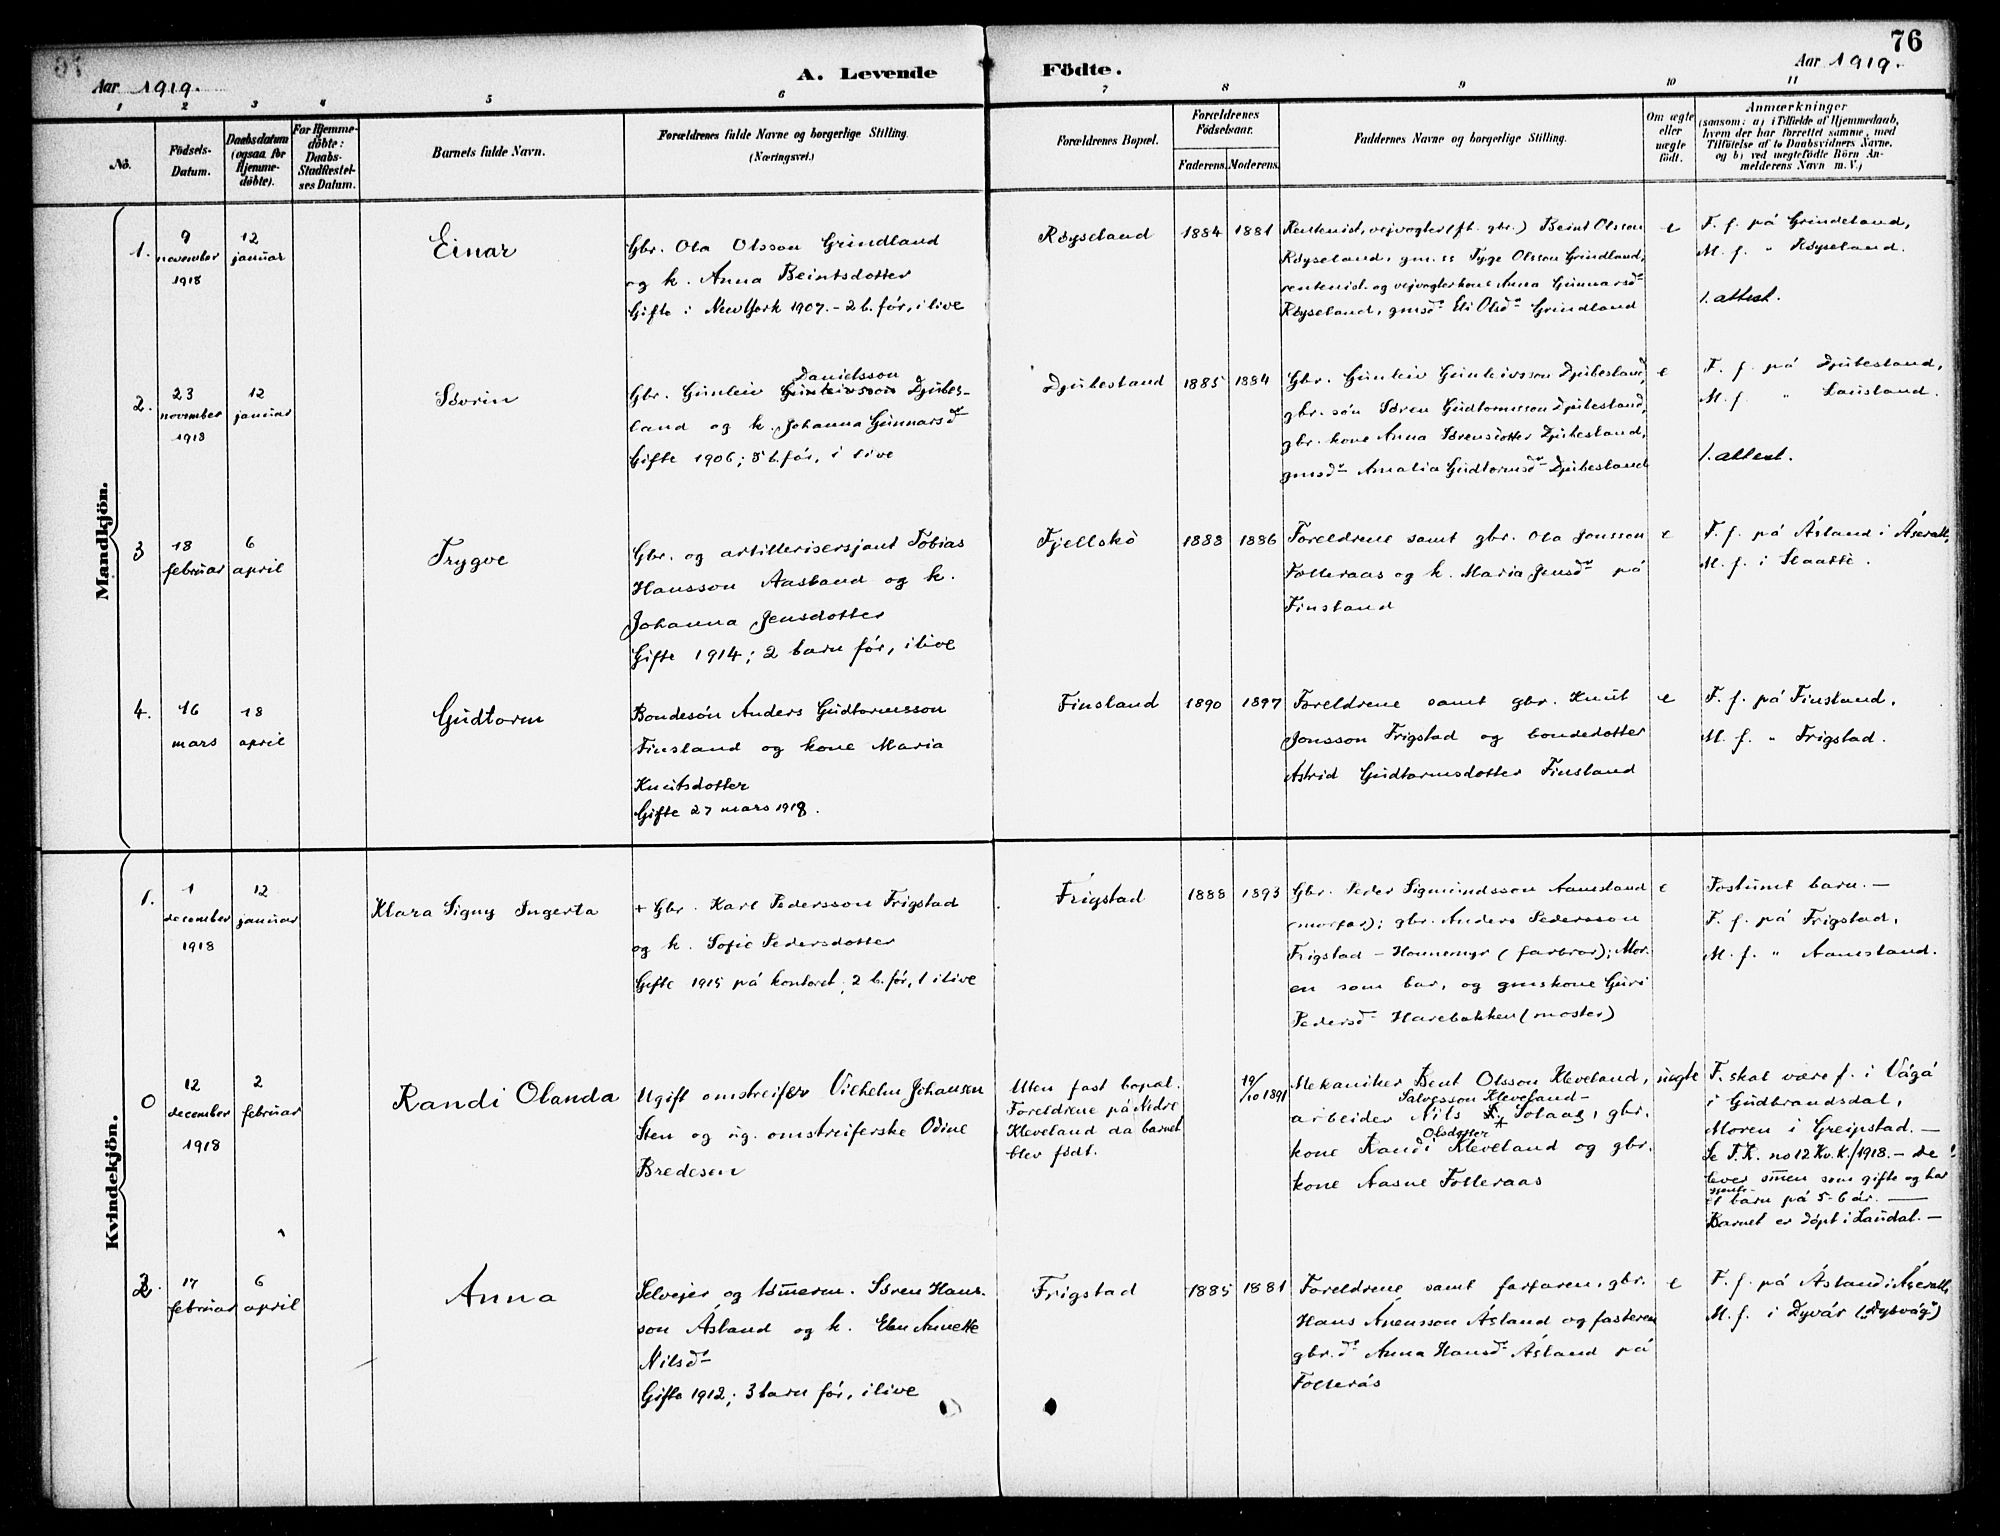 76
Aar 1919.
A. Levende
Födte.
Aar 1919.
1 2 3 4 5 6 7 8 9 10 11
No.
Födsels-
Datum.
Daabsdatum
(ogsaa for
Hjemme-
döbte).
For Hjemme-
döbte:
Daabs-
Stadfæstel-
ses Datum.
Barnets fulde Navn.
Forældrenes fulde Navne og borgerlige Stilling.
(Næringsvei.)
Forældrenes Bopæl.
Forældrenes
Födselsaar.
Faderens. Moderens.
Faddernes Navne og borgerlige Stilling.
Om ægte
eller
uægte
födt.
Anmærkninger
(saasom: a) i Tilfælde af Hjemmedaab,
hvem der har forrettet samme, med
Tilföielse af to Daabsvidners Navne,
og b) ved uægtefödte Börn An-
melderens Navn m. V.)
Mandkjön.
1.
9
november
1918
12
januar
Einar
Gbr. Ola Olsson Grindland
og k. Anna Beintsdotter
Gifte i NewYork 1907. - 2 b. før, i live
Røyseland
1884
1881
Rentenist, vejvogter (ft. gbr.) Beint Olsson
Røyseland, gm. ss Tyge Olsson Grindland,
rentenist. og vejvogterkone Anna Gunnarsdr
Røyseland, gmsdr Eli Olsdr Grindland
e
F. f. på Grindeland,
M. f. " Røyseland.
1. attest.
2.
23
november
1918
12
januar
Sørin
Danielsson
Gbr. Gunleiv Gunleivsson Djubes-
land og k. Johanna Gunnarsdr
Gifte 1906; 5 b. før, i live
Djubestand
1885
1884
Gbr. Gunleiv Gunleivsson Djubesland,
gbr. søn Søren Gudtormsson Djubesland,
gbr. kone Anna Sørensdotter Djubesland,
gmsdr Amalia Gudtormsdr Djubesland
e
F. f. på Djubesland,
M. f. " Lausland.
1. attest.
3
18
februar
6
april
Trygve
Gbr. og artillerisersjant Tobias
Hansson Aasland og k.
Johanna Jensdotter
Gifte 1914; 2 barn før, i live
Fjellskö
1888
1886
Foreldrene samt gbr. Ola Jonsson
Folleraas og k. Maria Jensdr på
Finsland
e
F. f. på Åsland i Åseral,
M. f. i Slaatte.
4.
16
mars
18
april
Gudtorm
Bondesøn Anders Gudtormsson
Finsland og kone Maria
Knutsdotter
Gifte 27 mars 1918.
Finsland
1890
1897
Foreldrene samt gbr. Knut
Jonsson Frigstad og bondedotter
Astrid Gudtormsdotter Finsland
e
F. f. på Finsland,
M. f. " Frigstad.
Kvindekjön.
1.
1
december
1918
12
januar
Klara Signy Ingerta
+ Gbr. Karl Pedersson Frigstad
og k. Sofie Pedersdotter
Gifte 1915 på kontoret; 2 b. før, 1 i live
Frigstad
1888
1893
Gbr. Peder Sigmundsson Aamsland
(morfar); gbr. Anders Pedersson
Frigstad - Honnemyr (farbror); Mor-
en som bar, og gmskone Guri
Pedersdr Harebakken (moster)
e
Postumt barn. -
F. f. på Frigstad,
M. f. " Aamsland.
0
12
december
1918
2
februar
Randi Olanda
Ugift omstreifer Vilhelm Johansen
Sten og ug. omstreiferske Odine
Bredesen
Uten fast bopæl.
Foreldrene på Nedre
Kleveland da barnet
blev født.
19/10 1891
Mekaniker Bent Olsson Kleveland,
Salvesson Kleveland -
arbeider Nils S. Solaas, gbr.
Olsdotter
kone Randi Kleveland og gbr.
kone Aasne Folleraas
uegte
F. skal være f. i Vågå
i Gudbrandsdal,
Moren i Greipstad. -
Se F. K. no 12 Kv. K. /1918. - De
lever smen som gifte og har
et barn på 5-6 år. -
Barnet er døpt i Laudal. -
2.
17
februar
6
april
Anna
Selvejer og tømerm. Søren Hans-
son Åsland og k. Elen Annette
Nilsdr
Gifte 1912; 3 barn før, i live
Frigstad
1885
1881
Foreldrene samt farfaren, gbr.
Hans Ånensson Åsland og fasteren
gbr. dr Anna Hansdr Åsland på
Follerås
e
F. f. på Åsland i Åseral,
M. f. i Dyvår ("Dybvåg")